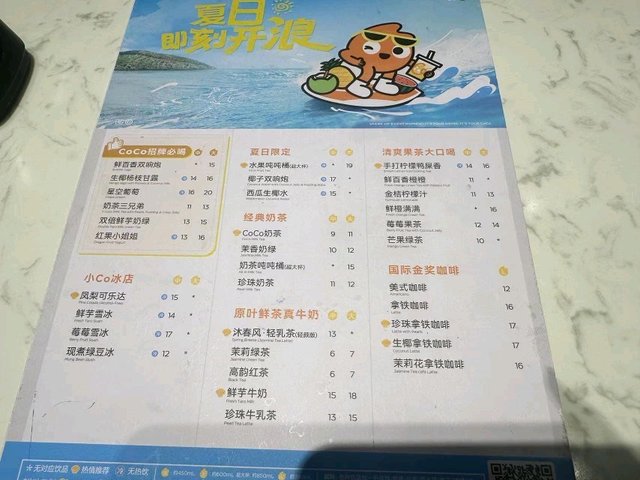 夏日
即刻开浪
CoCo招牌必喝 中 大
鲜百香双响炮 * 15
生椰杨枝甘露 14 16
星空葡萄 16 20
奶茶三兄弟 11 13
双倍鲜芋奶绿 13 15
红果小姐姐 13 16
小Co冰店 中 大
凤梨可乐达 15 *
鲜芋雪冰 14 *
莓莓雪冰 17 *
现煮绿豆冰 12 *
夏日限定 中 大
水果吨吨桶(超大杯) * 19
椰子双响炮 17 *
西瓜生椰水 15 *
经典奶茶 中 大
CoCo奶茶 9 11
茉香奶绿 10 12
奶茶吨吨桶(超大杯) * 15
珍珠奶茶 11 12
原叶鲜茶真牛奶 中 大
沐春风·轻乳茶(轻颜版) 13 *
茉莉绿茶 6 7
高韵红茶 6 7
鲜芋牛奶 15 18
珍珠牛乳茶 13 15
清爽果茶大口喝 中 大
手打柠檬鸭屎香 14 16
鲜百香橙橙 11 *
金桔柠檬汁 11 13
鲜橙满满 * 16
莓莓果茶 12 14
芒果绿茶 10 *
国际金奖咖啡 L
美式咖啡 12
拿铁咖啡 16
珍珠拿铁咖啡 17
生椰拿铁咖啡 17
茉莉花拿铁咖啡 16
* 无对应饮品 热情推荐 无热饮